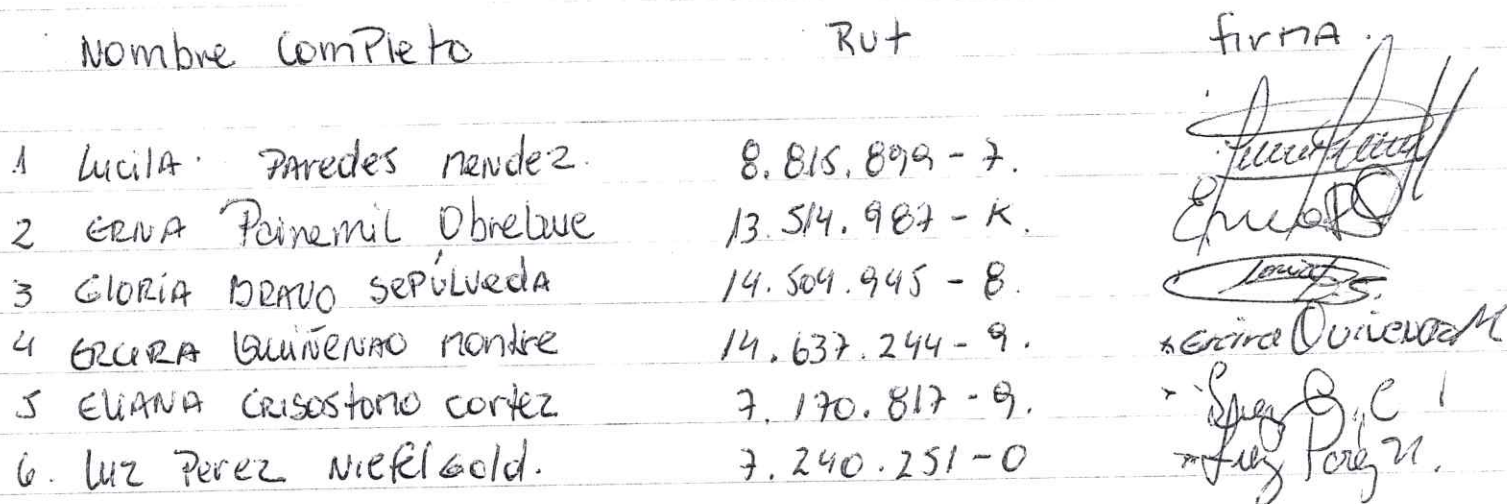 Nombre Completo Rut firma.
1 Lucila. Paredes Mendez. 8.815.899-7.
2 Erna Painemil Obreluve 13.514.987-K. Erna P O
3 Gloria Bravo Sepúlveda 14.504.945-8.
4 Quiñenao 14.637.244-9. Quiñenao M
5 Eliana Crisostomo Cortez 7.170.817-9.
6. Luz Perez Niefelgold. 7.240.251-0 Luz Perez N.